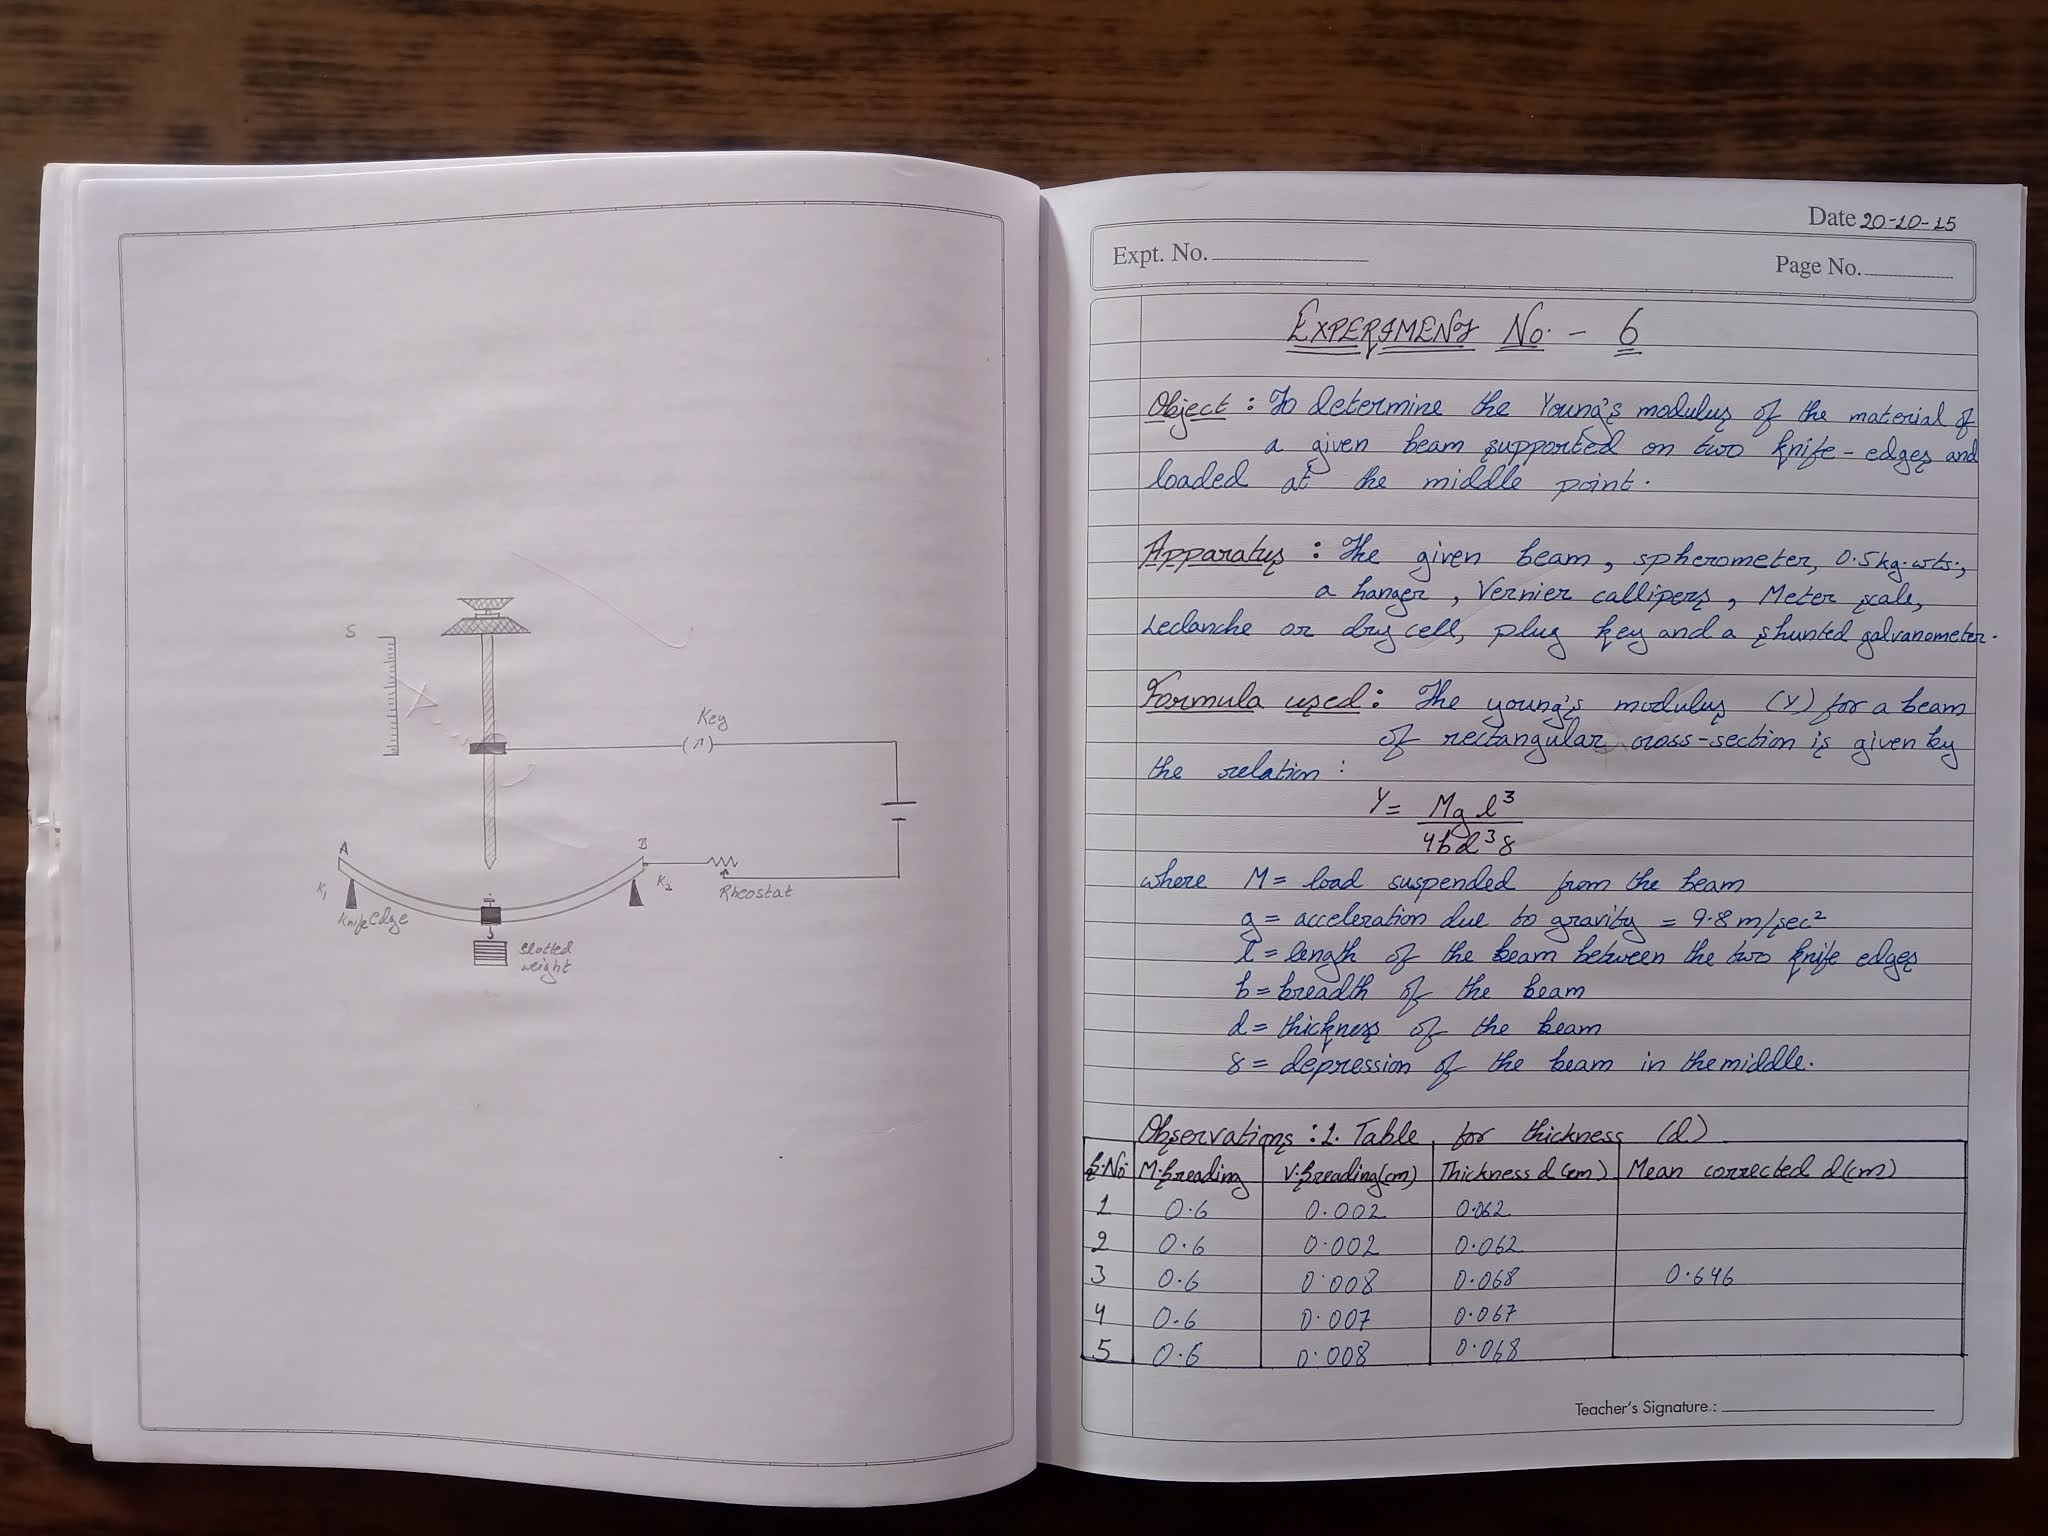 S
Key
A
B
K1
K2
Knife Edge
Rheostat
Slotted
weight
Date 20-10-15
Expt. No.
Page No.
EXPERIMENT No. - 6
Object : To determine the Young's modulus of the material of
a given beam supported on two knife-edges and
loaded at the middle point.
Apparatus : The given beam, spherometer, 0.5kg.wts.,
a hanger, Vernier callipers, Meter scale,
Leclanche or dry cell, plug key and a shunted galvanometer.
Formula used : The young's modulus (Y) for a beam
of rectangular cross-section is given by
the relation :
Y = Mg l³ / 4bd³δ
where M = load suspended from the beam
g = acceleration due to gravity = 9.8 m/sec²
l = length of the beam between the two knife edges
b = breadth of the beam
d = thickness of the beam
δ = depression of the beam in the middle.
Observations : 1. Table for thickness (d)
S.No. M.S.reading V.S.reading(cm) Thickness d (cm) Mean corrected d(cm)
1 0.6 0.002 0.062
2 0.6 0.002 0.062
3 0.6 0.008 0.068 0.646
4 0.6 0.007 0.067
5 0.6 0.008 0.068
Teacher's Signature :